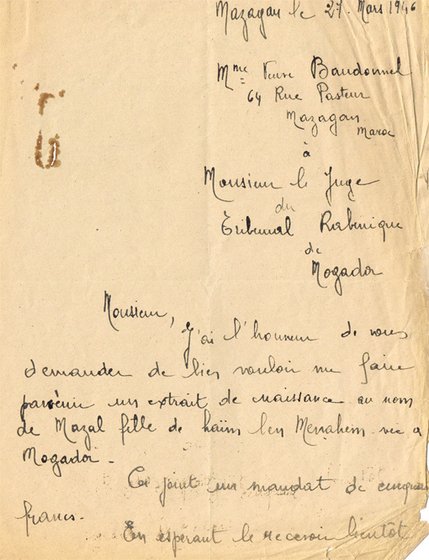 Mazagan le 27 Mars 1946
Mme Veuve Baudonnel
64 Rue Pasteur
Mazagan
Maroc
à
Monsieur le Juge
du
Tribunal Rabinique
de
Mogador
Monsieur,
J'ai l'honneur de vous
demander de bien vouloir me faire
parvenir un extrait de naissance au nom
de Mazal fille de haïm ben Menahem née a
Mogador.
Ci joint un mandat de cinquante
francs.
En espérant le recevoir bientôt